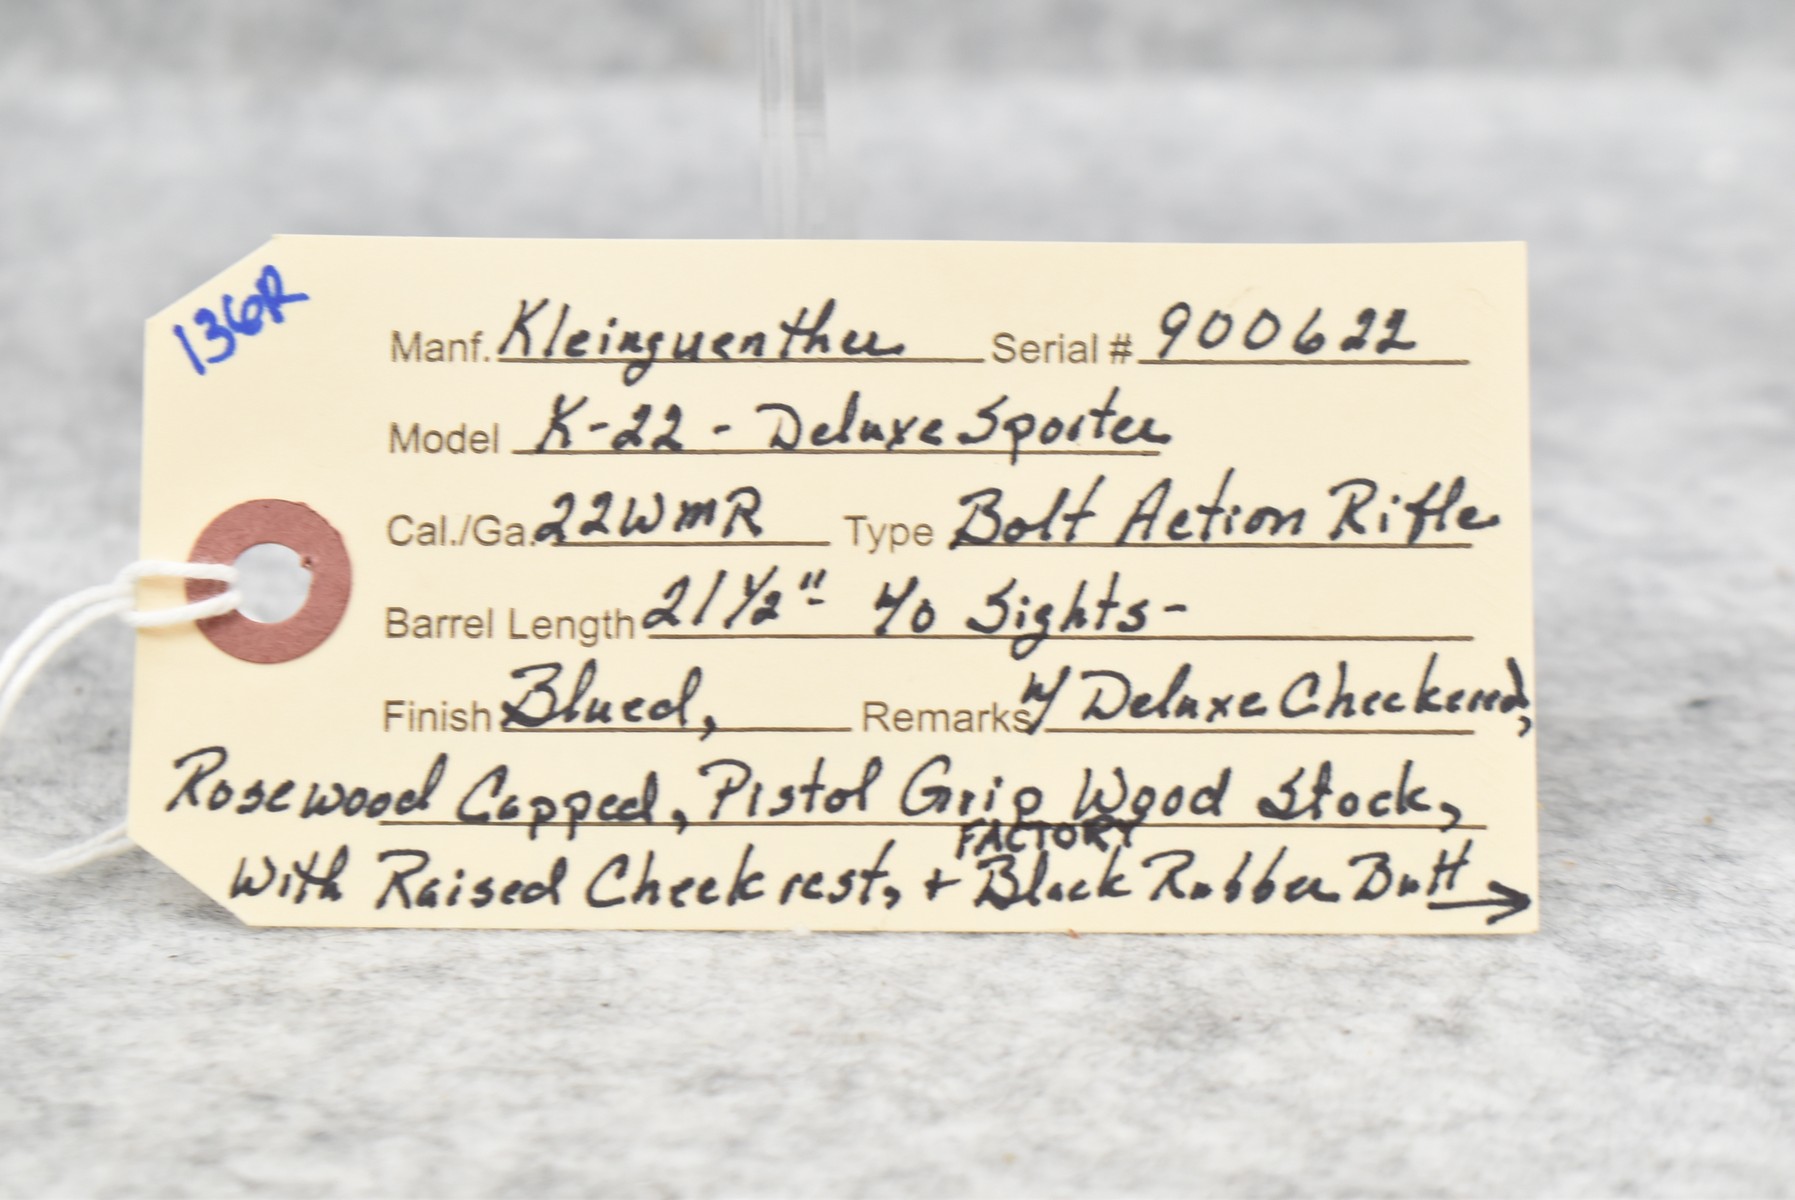 136R
Manf. Kleinguenther Serial # 900622
Model K-22 - Deluxe Sporter
Cal./Ga. 22WMR Type Bolt Action Rifle
Barrel Length 21 1/2" - W/o Sights -
Finish Blued, Remarks W/ Deluxe Checkered,
Rosewood Capped, Pistol Grip Wood Stock,
FACTORY
With Raised Cheekrest, + Black Rubber Butt →